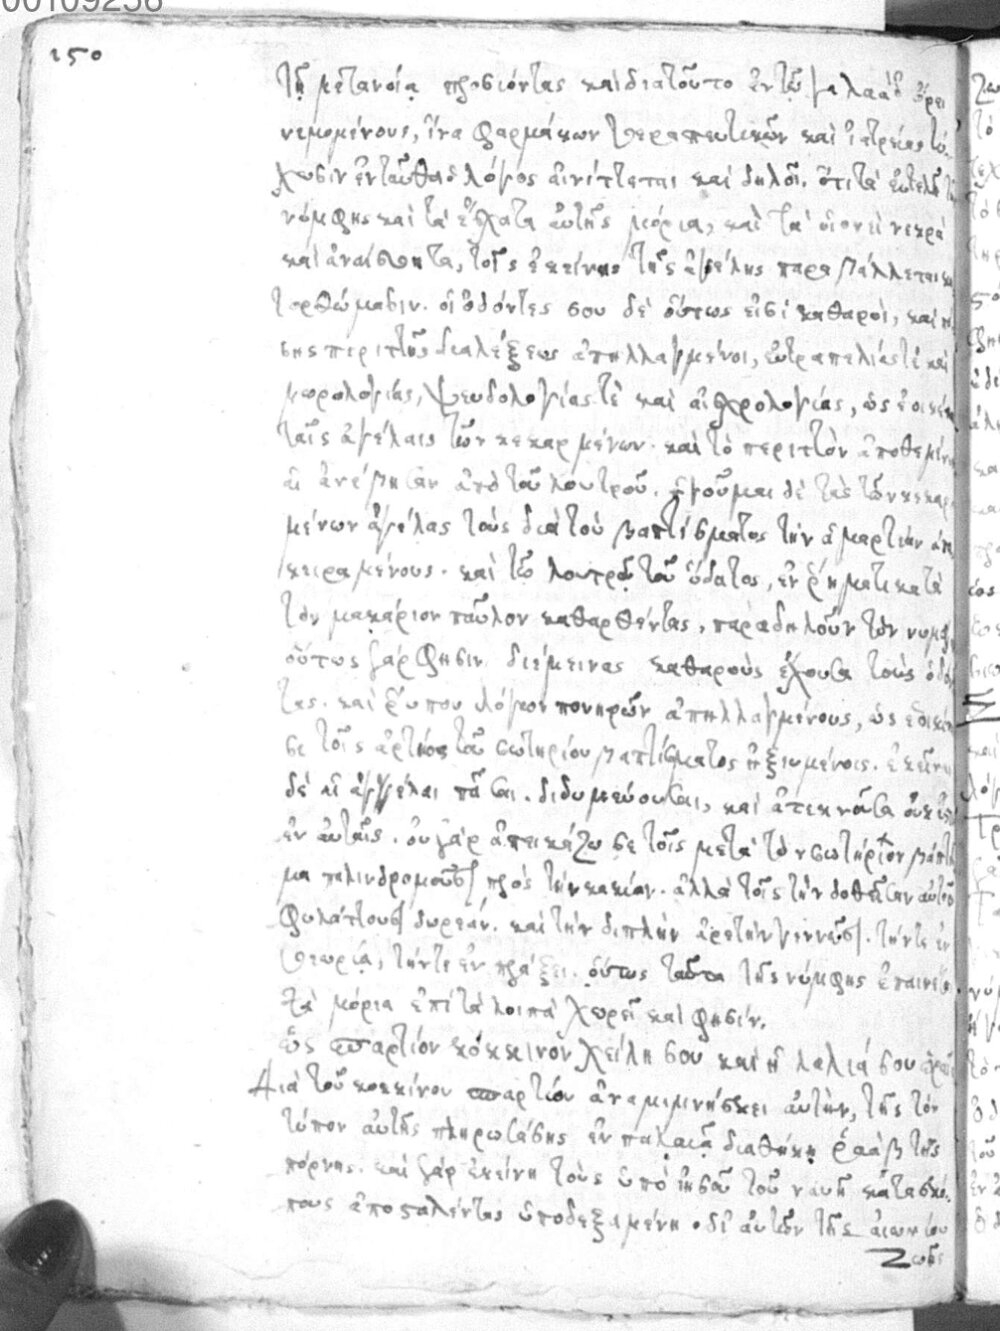 00109256
150
τῇ μετανοίᾳ προσιόντας καὶ διατοῦτο ἐν τῷ γαλαὰδ ὄρει
νεμομένους, ἵνα φαρμάκων θεραπευτικῶν καὶ ἰατρείας τύ-
χωσιν ἐνταῦθα ὁ λόγος αἰνίττεται καὶ δηλοῖ. ὅτι τὰ εὐτελῆ
νύμφης καὶ τὰ ἔσχατα αὐτῆς μόρια, καὶ τὰ οἱονεὶ νεκρὰ
καὶ ἀναίσθητα, τοῖς ἐκείνης τῆς ἀγέλης παραβάλλεται
τορθώμασιν. οἱ ὀδόντες σου δὲ οὕτως εἰσὶ καθαροὶ, καὶ
σης περιττῆς διαλέξεως ἀπηλλαγμένοι, εὐτραπελίας τὲ καὶ
μωρολογίας, ψευδολογίας τὲ καὶ αἰσχρολογίας, ὡς ἐοικέναι
ταῖς ἀγέλαις τῶν κεκαρμένων. καὶ τὸ περιττὸν ἀποθεμένων
αἳ ἀνέβησαν ἀπὸ τοῦ λουτροῦ. ἡγοῦμαι δὲ τὰς τῶν κεκαρ
μένων ἀγέλας τοὺς διὰ τοῦ βαπτίσματος τὴν ἁμαρτίαν ἀπο
κειραμένους. καὶ τῷ λουτρῷ τοῦ ὕδατος, ἐν ῥήματι κατὰ
τὸν μακάριον παῦλον καθαρθέντας, παραδηλοῦν τὸν νυμφ
οὕτως γάρ φησιν διέμεινας καθαροὺς ἔχουσα τοὺς ὀδόν
τας. καὶ ῥύπου λόγων πονηρῶν ἀπηλλαγμένους, ὡς ἐοικέν
σε τοῖς ἀρτίως τοῦ σωτηρίου βαπτίσματος ἠξιωμένοις. ἐκεῖναι
δὲ αἱ ἀγέλαι πᾶσαι. διδυμεύουσαι, καὶ ἀτεκνοῦσα οὐκ ἔστι
ἐν αὐταῖς. οὐ γὰρ ἀπεικάζω σε τοῖς μετὰ τὸν σωτήριον βάπτι
μα παλινδρομοῦσι πρὸς τὴν κακίαν. ἀλλὰ τοῖς τὴν δοθεῖσαν αὐτοῖς
φυλάττουσι δωρεάν. καὶ τὴν διπλὴν ἀρετὴν γεννῶσι. τήν τε ἐν
θεωρίᾳ, τήν τε ἐν πράξει. οὕτως ταῦτα τῆς νύμφης ἐπαινέσ
τὰ μόρια ἐπὶ τὰ λοιπὰ χωρεῖ καὶ φησίν.
ὡς σπαρτίον κόκκινον χείλη σου καὶ ἡ λαλιά σου ὡραί
Διὰ τοῦ κοκκίνου σπαρτίου ἀναμιμνήσκει αὐτὴν, τῆς τὸν
τύπον αὐτῆς πληρωσάσης ἐν παλαιᾷ διαθήκῃ ῥαὰβ τῆς
πόρνης. καὶ γὰρ ἐκείνη τοὺς ὑπὸ ἰησοῦ τοῦ ναυῆ κατασκό-
πους ἀποσταλέντας ὑποδεξαμένη. δι' αὐτῶν τῆς αἰωνίου
ζωῆς